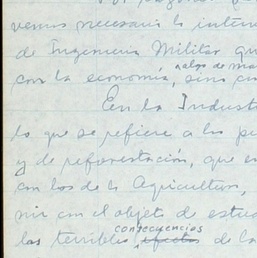 vemos necesario la interve
de Ingenieria Militar que
con la economía, algo de ma sino cu
En la Indust
lo que se refiere a los pe
y de reforestación, que es
con los de la Agricultura,
nir con el objeto de estud
las terribles consecuencias efectos de la